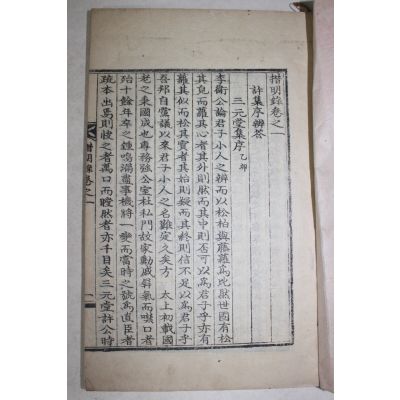 揩明錄卷之一
許集序辨答
三元堂集序 乙卯
李衛公論君子小人之辨而以松柏與藤蘿爲比然世固有松
其皃而蘿其心者其外則然而其中則否可以爲君子乎亦有
蘿其似而松其實者其始則疑而其終則信不足以爲君子乎
吾邦自黨議以來君子小人之名難定久矣方 太上初載國
老之秉國成也專務強公室杜私門故家勳戚斜氣而嘆口者
殆十餘年辛之鍾鳴漏盡事機將一變而當時之號爲直臣者
疏本出焉則悅之者萬口而瞠然者亦千目矣三元堂許公時
揩明錄卷之一
一